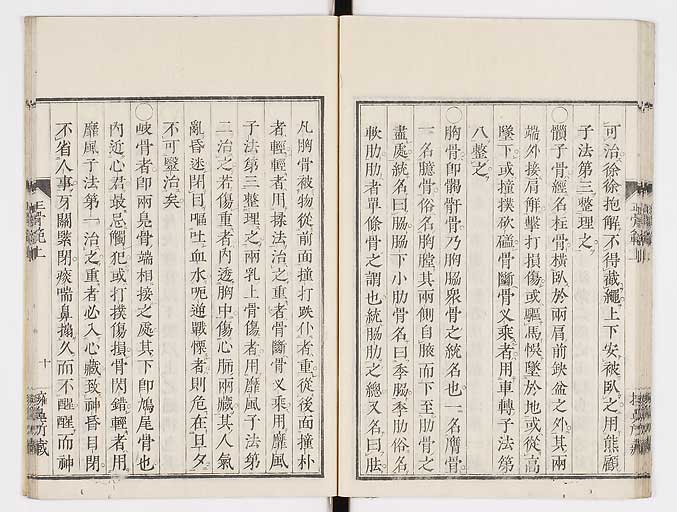 可治徐徐抱解不得截繩上下安被臥之用熊顧
子法第三整理之
○髃子骨經名柱骨橫臥於兩肩前缺盆之外其兩
端外接肩解擊打損傷或驅馬悞墜於地或從高
墜下或撞撲砍磕骨斷骨叉乘者用車轉子法第
八整之
○胸骨卽𩩲骬骨乃胸脇衆骨之統名也一名膺骨
一名臆骨俗名胸膛其兩側自腋而下至肋骨之
盡處統名曰脇脇下小肋骨名曰季脇季肋俗名
軟肋肋者單條骨之謂也統脇肋之總又名曰胠
正骨範上
凡胸骨被物從前面撞打跌仆者重從後面撞朴
者輕輕者用揉法治之重者骨斷骨叉乘用靡風
子法第三整理之兩乳上骨傷者用靡風子法第
二治之若傷重者內透胸中傷心肺兩臟其人氣
亂昏迷閉目嘔吐血水呃逆戰慄者則危在旦夕
不可毉治矣
○岐骨者卽兩鳧骨端相接之處其下卽鳩尾骨也
內近心君最忌觸犯或打撲傷損骨閃錯輕者用
靡風子法第一治之重者必入心臟致神昏目閉
不省人事牙關緊閉痰喘鼻搧久而不醒醒而神
正骨範上
十